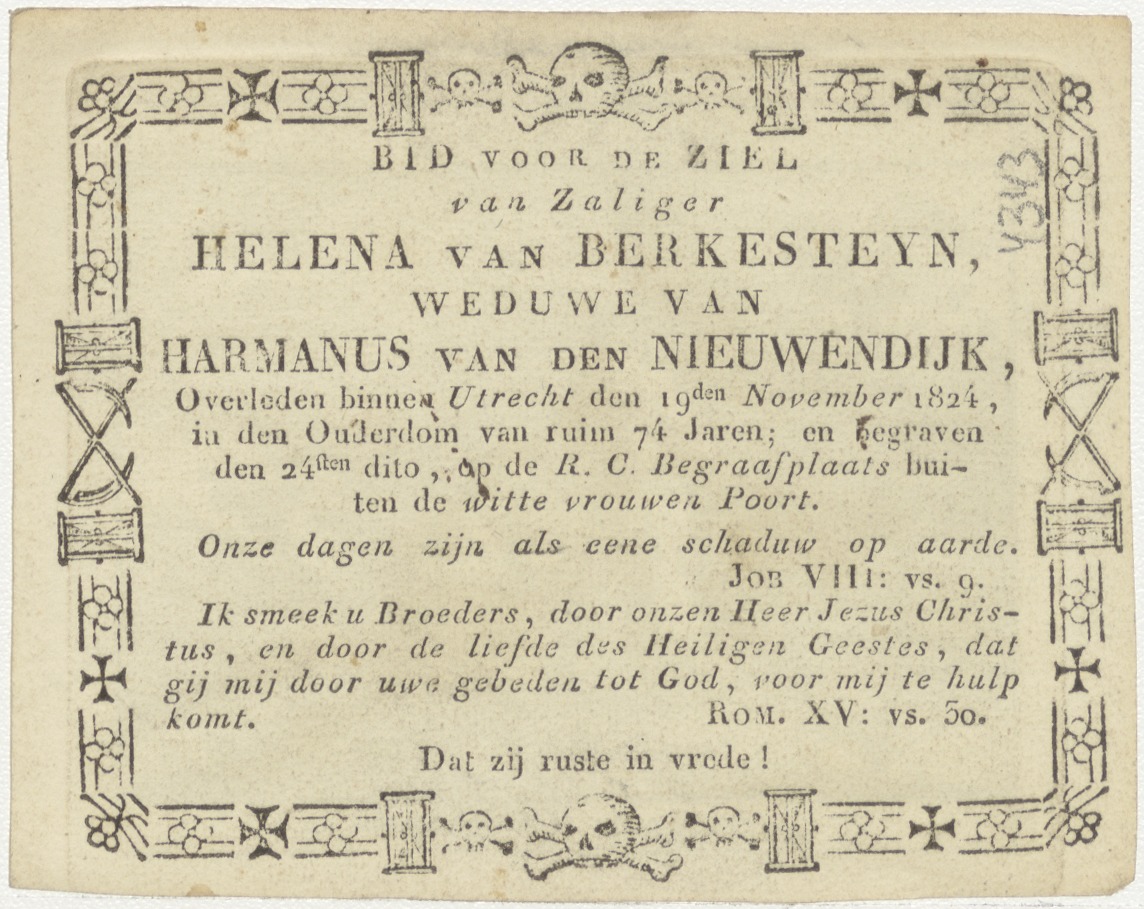 BID VOOR DE ZIEL
van Zaliger
HELENA VAN BERKESTEYN,
WEDUWE VAN
HARMANUS VAN DEN NIEUWENDIJK,
Overleden binnen Utrecht den 19den November 1824,
in den Ouderdom van ruim 74 Jaren; en begraven
den 24sten dito, op de R. C. Begraafplaats bui-
ten de witte vrouwen Poort.
Onze dagen zijn als eene schaduw op aarde.
JOB VIII: vs. 9.
Ik smeek u Broeders, door onzen Heer Jezus Chris-
tus, en door de liefde des Heiligen Geestes, dat
gij mij door uwe gebeden tot God, voor mij te hulp
komt. ROM. XV: vs. 30.
Dat zij ruste in vrede!
4343